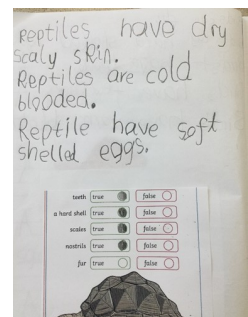 Reptiles have dry
scaly skin.
Reptiles are cold
blooded.
Reptile have soft
shelled eggs.
teeth true false
a hard shell true false
scales true false
nostrils true false
fur true false